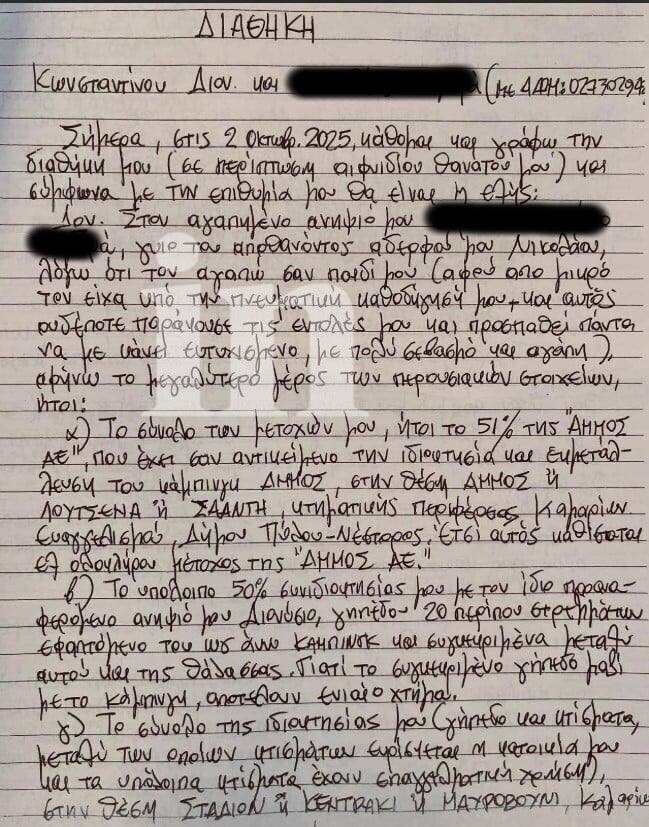 ΔΙΑΘΗΚΗ
Κωνσταντίνου Διον. και (με ΑΔΤΗ: 02730294
Σήμερα, στις 2 Οκτωβρ. 2025, κάθομαι και γράφω την
διαθήκη μου (σε περίπτωση αιφνιδίου θανάτου μου) και
σύμφωνα με την επιθυμία μου θα είναι η εξής:
1ον. Στον αγαπημένο ανηψιό μου
ά, γυιό του αποθανόντος αδερφού μου Νικολάου,
λόγω ότι τον αγαπώ σαν παιδί μου (αφού απο μικρό
τον είχα υπό την πνευματική καθοδήγησή μου, και αυτός
ουδέποτε παράκουσε τις εντολές μου και προσπαθεί πάντα
να με κάνει ευτυχισμένο, με πολύ σεβασμό και αγάπη),
αφήνω το μεγαλύτερο μέρος των περουσιακών στοιχείων,
ήτοι:
α) Το σύνολο των μετοχών μου, ήτοι το 51% της "ΑΜΜΟΣ
ΑΕ", που έχει σαν αντικείμενο την ιδιοκτησία και εκμετάλ-
λευση του κάμπινγκ ΑΜΜΟΣ, στην θέση ΑΜΜΟΣ ή
ΛΟΥΤΣΕΝΑ ή ΣΑΑΝΤΗ, κτηματικής περιφέρειας Καμαρίων
Ευαγγελισμού, Δήμου Πύλου-Νέστορος. Έτσι αυτός καθίσταται
εξ ολοκλήρου μέτοχος της "ΑΜΜΟΣ ΑΕ."
β) Το υπόλοιπο 50% συνιδιοκτησίας μου με τον ίδιο προανα-
φερόμενο ανηψιό μου Διονύσιο, γηπέδου 20 περίπου στρεμμάτων
εφαπτόμενο του ως άνω ΚΑΜΠΙΝΓΚ και συγκεκριμένα μεταξύ
αυτού και της θάλασσας. Γιατί το συγκεκριμένο γήπεδο μαζί
με το κάμπινγκ, αποτελούν ενιαίο κτήμα.
γ) Το σύνολο της ιδιοκτησίας μου (γήπεδο και κτίσματα,
μεταξύ των οποίων κτισμάτων ευρίσκεται η κατοικία μου
και τα υπόλοιπα κτίσματα έχουν επαγγελματική χρήση),
στην θέση ΣΤΑΔΙΟΝ ή ΚΕΝΤΡΑΚΙ ή ΜΑΥΡΟΒΟΥΝΙ,
in